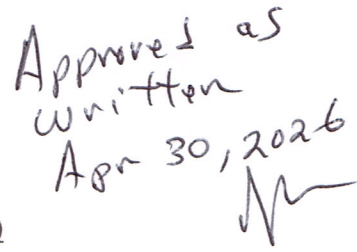 Approved as
written
Apr 30, 2026